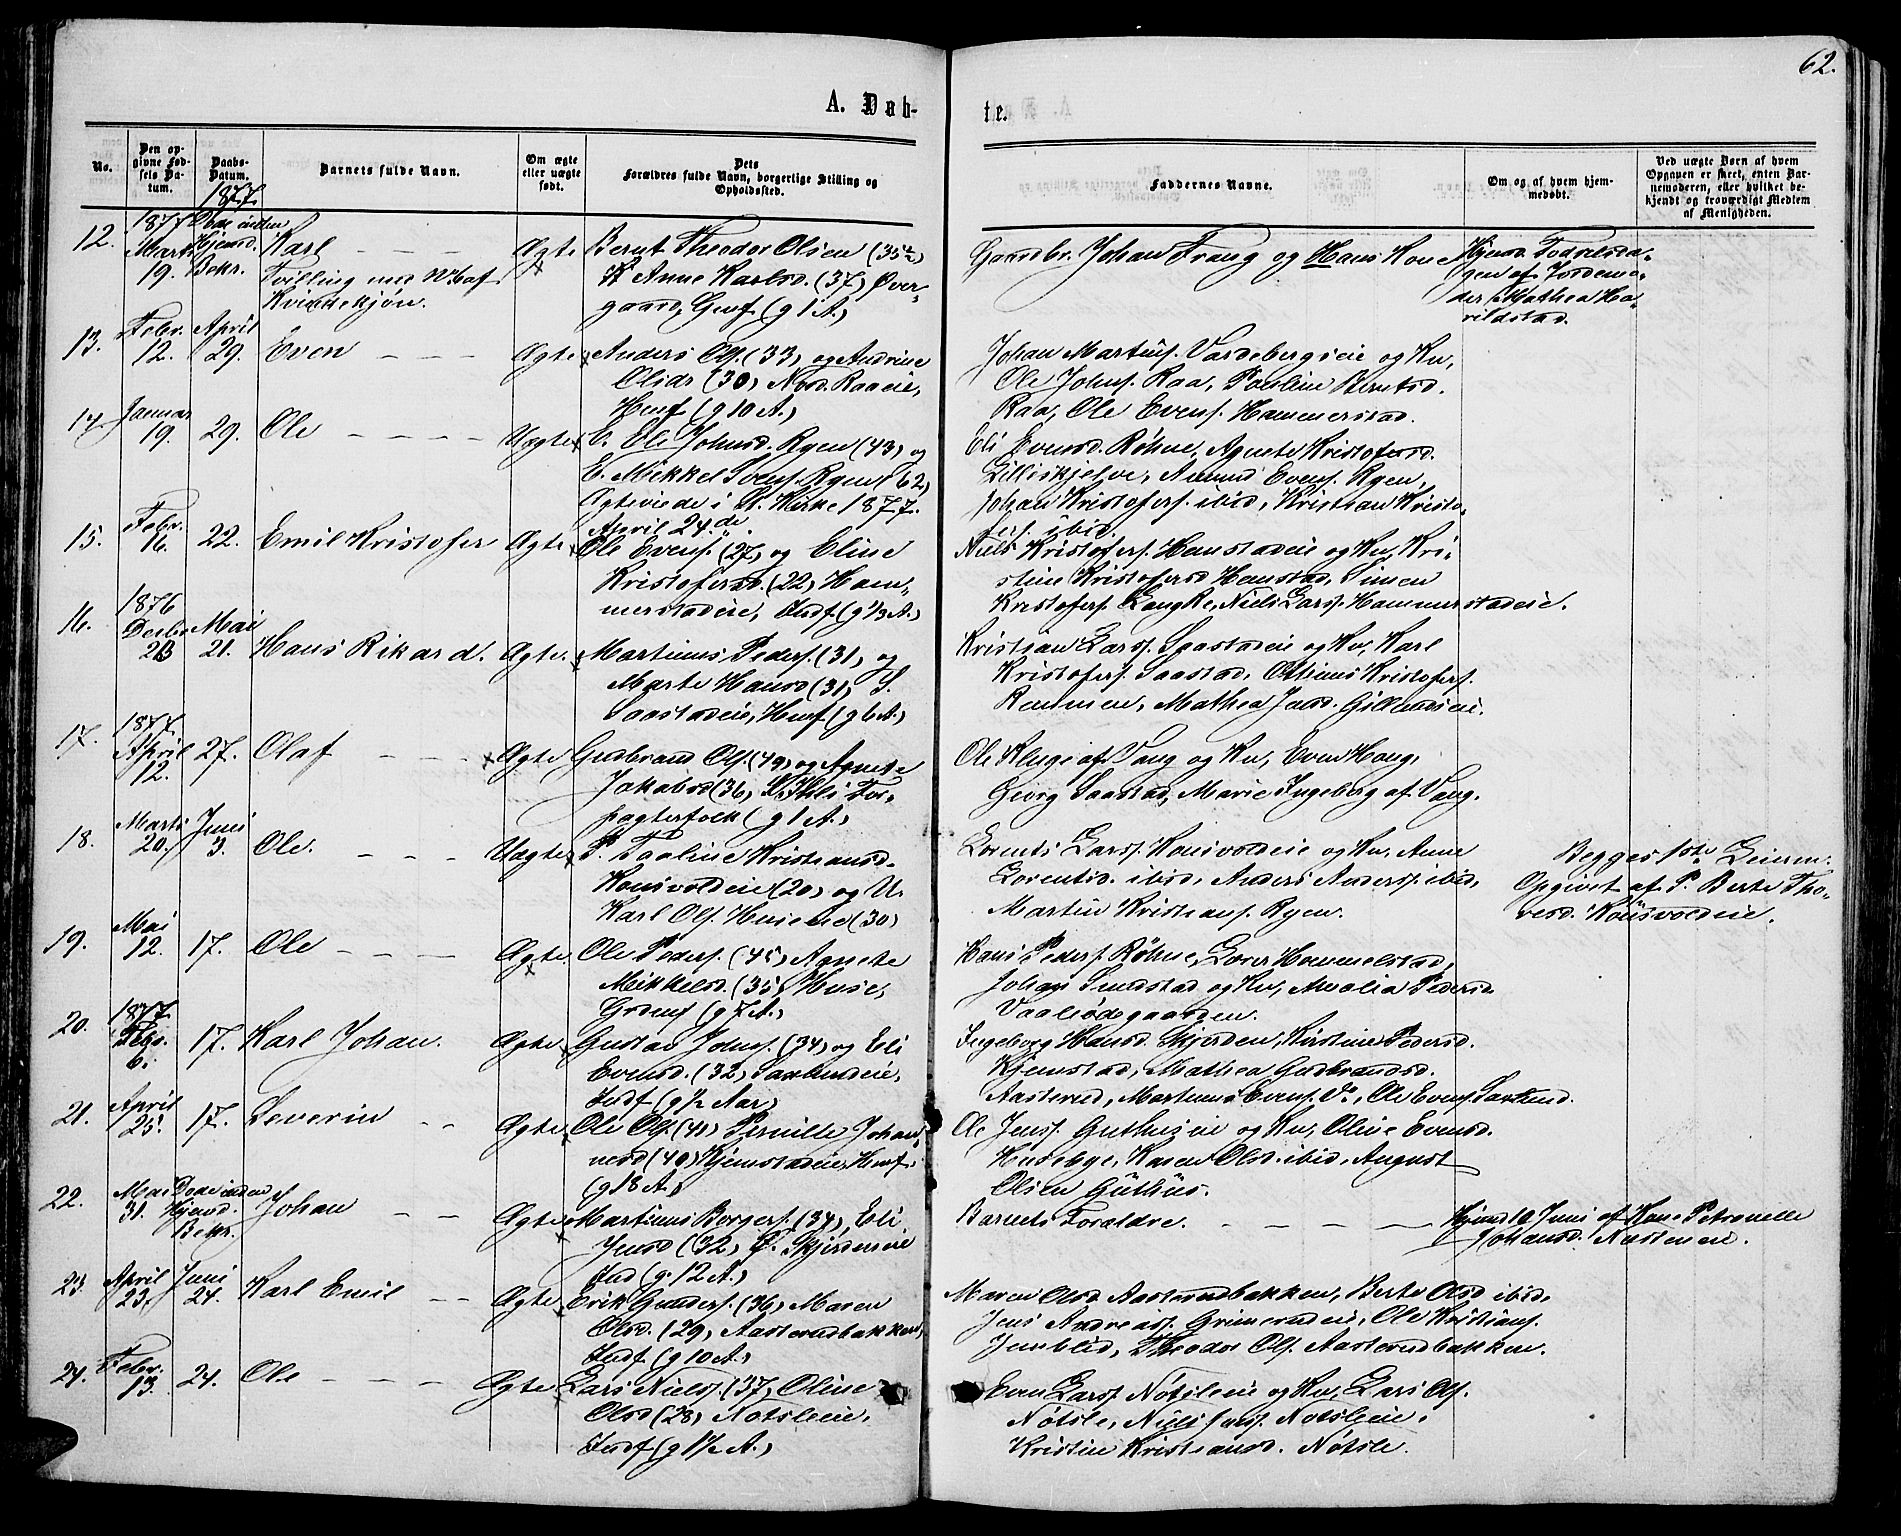 62.
A. Døb-
te.
No.
Den op-
givne Fød-
sels Da-
tum.
Daabs-
Datum.
1877.
Barnets fulde Navn.
Om ægte
eller uægte
født.
Dets
Forældres fulde Navn, borgerlige Stilling og
Opholdssted.
Faddernes Navne.
Om og af hvem hjem-
medøbt.
Ved uægte Børn af hvem
Opgaven er skeet, enten Bar-
nemoderen, eller hvilket be-
kjendt og troværdigt Medlem
af Menigheden.
12.
1877
Marts
19.
Døde inden
Bekr.
Karl
Tvilling med
Kvindekjøn.
Ægte
Bernt Theodor Olsen (35½)
K Anne Karlsd. (37) Øver-
gaard, (g 1 A.)
Gaardbr. Johan Frang og Hans Kone
Hjemd. Fødselsda-
gen af Jordemo-
der Mathea Ha-
rildstad.
13.
Febr.
12.
April
29.
Even
Ægte
Anders Ols. (33) og Andrine
Olsdr (30) Raaeie,
Husf (g 10 A.)
Johan Martins. Vardebergseie og Ku,
Ole Johns. Raa, Pauline Berntsd.
Raa, Ole Evens. Hammerstad.
14
Januar
19.
29.
Ole
Uægte
E. Eli Johnsd. Ryen (43) og
E. Mikkel Svens. Ryen (62)
Ægteviede i Kirke 1877.
April 24de.
Eli Evensd. Røhne, Agnete Kristofersd.
Lilliskjelve, Amund Evens. Ryen,
Johan Kristofers. ibid, Kristian Kristo-
fers. ibid.
15.
Febr.
16.
22.
Emil Kristofer
Ægte
Ole Evens. (27) og Eline
Kristofersd. (22) Ham-
merstadeie, Indf (g 1/3 A.)
Niels Kristofers. Honstadeie og Ku, Kri-
stine Kristofersd Honstad, Simen
Kristofers. LangRe, Niels Larss. Hammerstadeie.
16.
1876
Decbr
Mai
21.
Hans Rikard.
Ægte.
Martinus Peders. (31) og
Marte Hansd (31) S.
Saastadeie, Husf (g 6 A.)
Kristian Larss. Saastadeie og Ku, Karl
Kristofers. Saastad, Kristofers.
Rommen, Mathea Jensd. Gillundseie.
17.
1877.
April
12.
27.
Olaf
Ægte
Gudbrand Ols. (49) og Agnete
Jakobsd (36) Ihli For-
pagterfolk (g 1 A.)
Ole Kluge af Vang og Ku, Even Hong,
Georg Saastad, Marie Ingeborg af Vang.
18.
Marts
20.
Juni
3.
Ole.
Uægte
P. Pauline Kristiansd.
Konsvoldeie (20) og U.
Karl Ols. Huseeie (30)
Lorents Larss. Konsvoldeie og Ku, Anne
Lorentsd. ibid, Anders Anderss. ibid,
Martin Kristians. Ryen.
Begges 1ste Leierm.
Opgivet af P. Berte Tho-
resd. Konsvoldeie.
19.
Mai
12.
17.
Ole
Ægte.
Ole Peders. (45) Agnete
Mikkelsd. (35) Huse,
(g 7 A.)
Hans Peders Røhne, Hommelstad,
Johan Smedstad og Ku, Amalia Pedersd.
Vaaliødegaarden.
20.
1877
Febr.
6.
17.
Karl Johan.
Ægte
Gustav Johns. (34) og Eli
Evensd. (32) Saxlundeie,
Indf (g ½ Aar)
Ingeborg Hansd. Skjerden, Kirstine Pedersd.
Kjemstad, Mathea Gudbrandsd.
Aasterud, Martinus Evens. Do, Ole Evens Saxlund.
21.
April
25.
17.
Severin
Ægte
Ole Ols. (41) Pernille Johan-
nesd (40) Kjemstadeie, Husf.
(g 18 A.)
Ole Jenss. Guthuseie og Ku, Olive Evensd.
Husebye, Karen Olsd. ibid, August
Olsen Guthus.
22.
Mai
31.
Døde inden
Bekr.
Johan
Ægte
Martinus Borgers. (34), Eli
Jensd (32) Ø. Skjerdeneie
Ind (g. 12 A.)
Barnets Forældre.
Hjemd 10 Juni af Kone Petronelle
Johansd. Aasteneie.
23.
April
23.
Juni
24.
Karl Emil
Ægte
Erik Gunders. (36) Maren
Olsd. (29) Aasterudbakken,
Indf (g 10 A.)
Maren Olsd Aasterudbakken, Berte Olsd ibid,
Jens Andreass. Grimerudeie, Ole Kristians.
Jemblid, Theodor Ols. Aasterudbakken.
24.
Febr.
13.
24.
Ole
Ægte
Lars Niels. (37) Oline
Olsd (28) Nøtsleeie,
Indf (g 1½ A.)
Even Larss. Nøtsleeie og Ku, Lars Ols.
Nøtsle, Niels Nøtsleeie,
Kristine Kristiansd. Nøtsle.